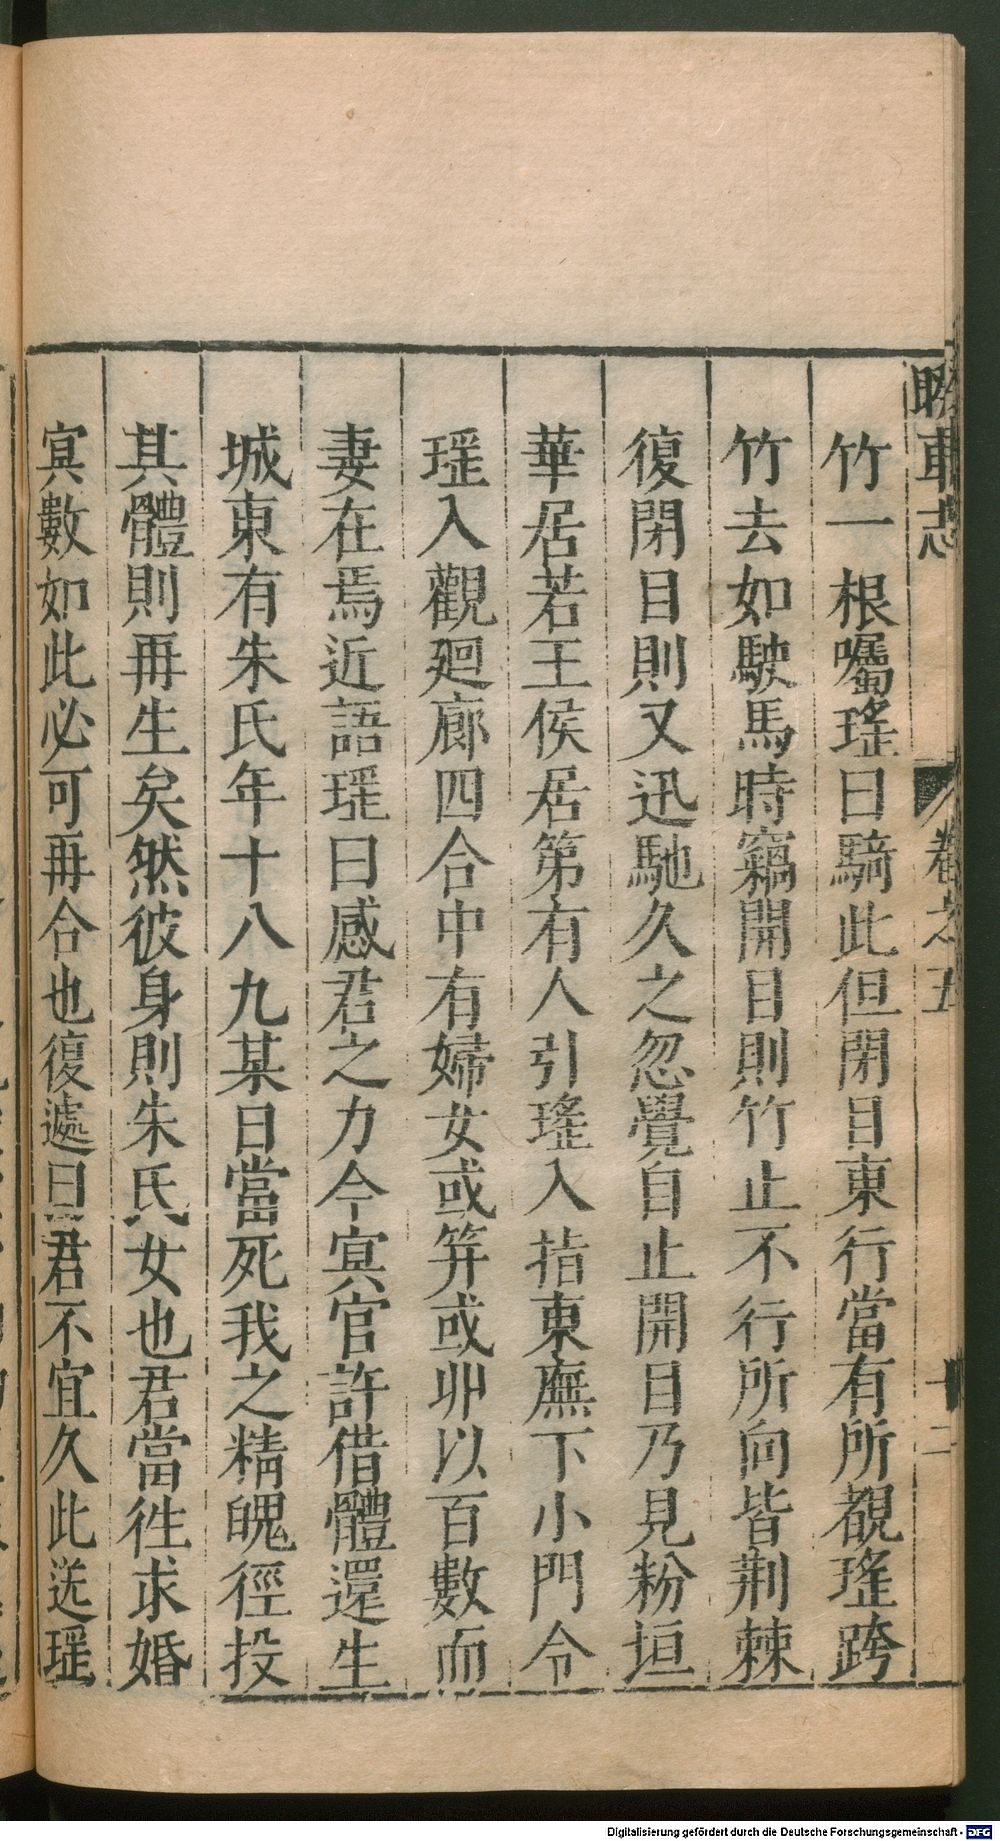 聧車志　卷之五　十二
竹一根囑瑤曰騎此但閉目東行當有所覩瑤跨
竹去如駛馬時竊開目則竹止不行所向皆荆棘
復閉目則又迅馳久之忽覺自止開目乃見粉垣
華居若王侯居第有人引瑤入指東廡下小門令
瑤入觀廻廊四合中有婦女或笄或丱以百數而
妻在焉近語瑤曰感君之力今㝠官許借體還生
城東有朱氏年十八九某日當死我之精魄徑投
其體則再生矣然彼身則朱氏女也君當徃求婚
㝠數如此必可再合也復遽曰君不宜久此送瑤
Digitalisierung gefördert durch die Deutsche Forschungsgemeinschaft - DFG